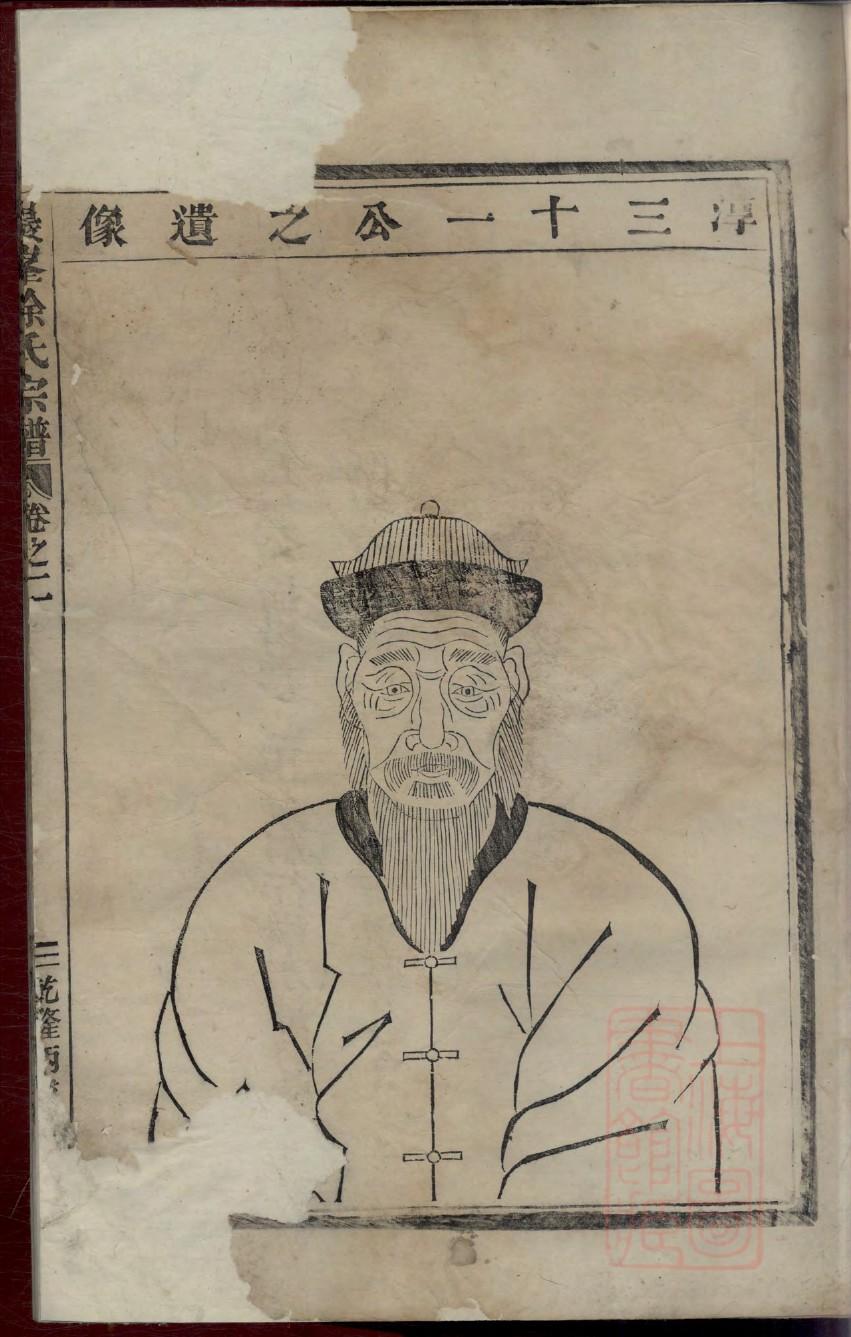 淳三十一公之遺像
峯徐氏宗譜
卷之
三
乾隆
上海圖書館藏